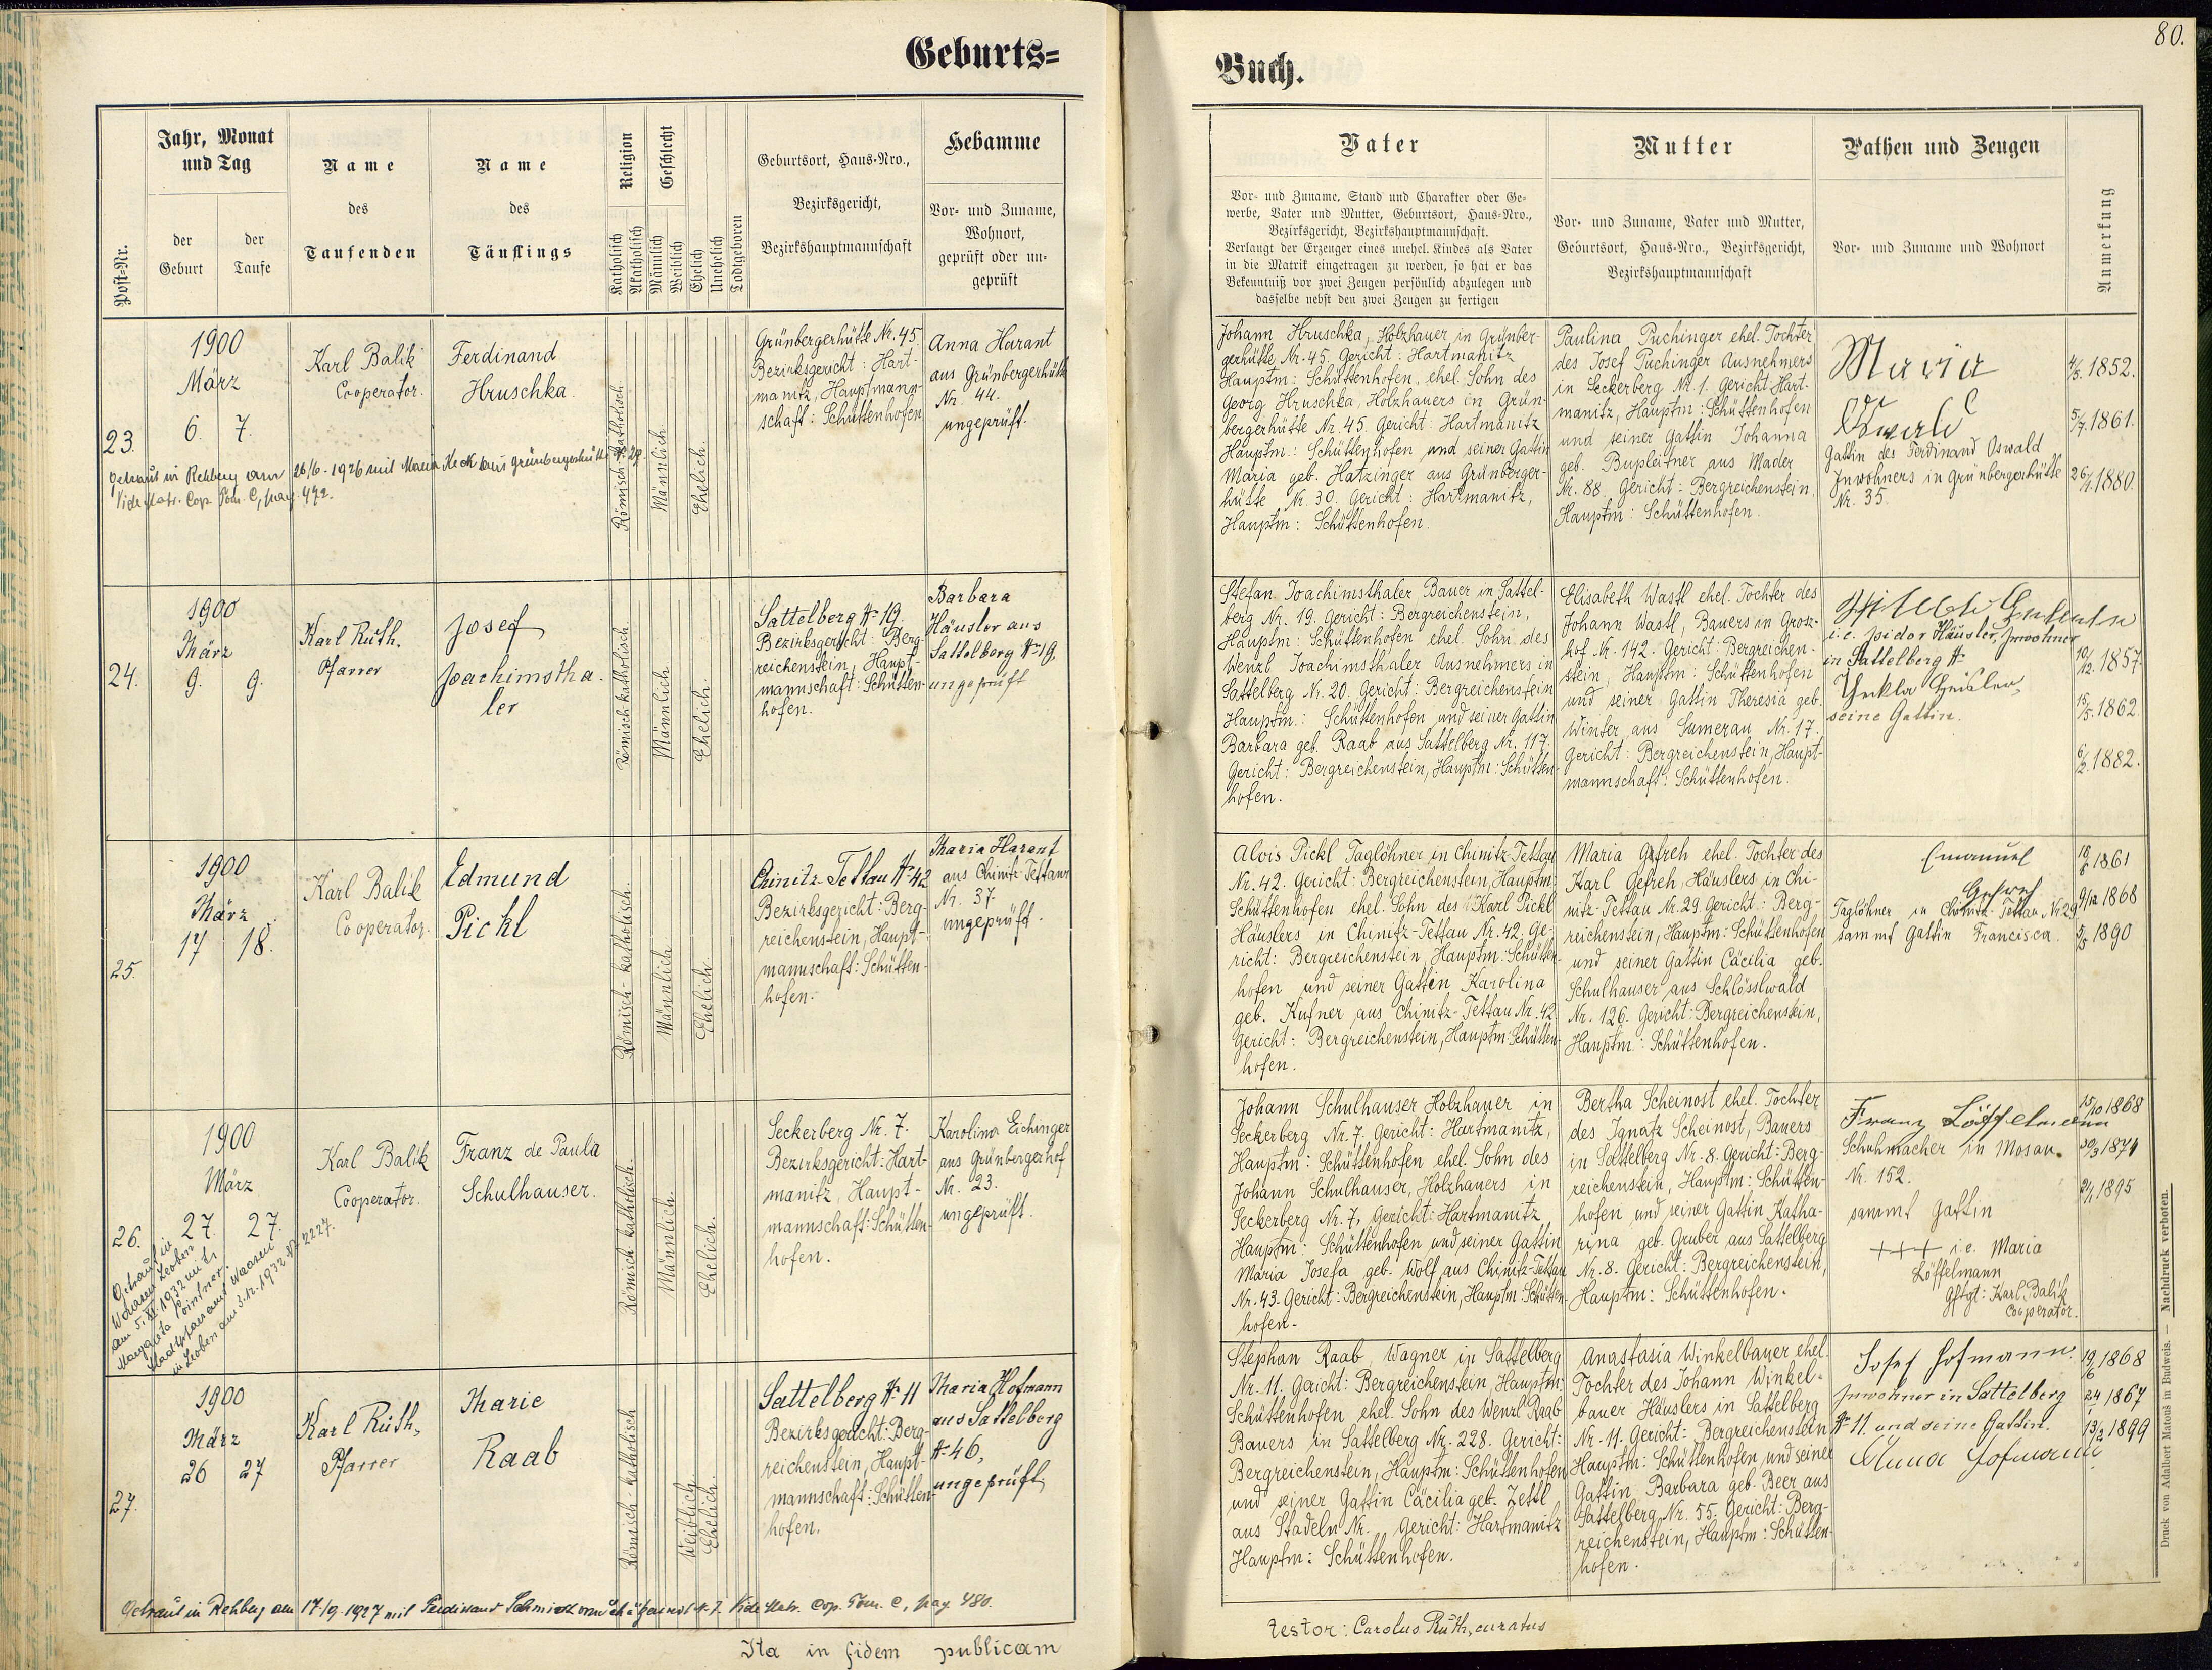 Geburts=
Jahr, Monat
und Tag
Post-Nr.
der
Geburt
der
Taufe
Name
des
Taufenden
Name
des
Täuflings
Religion
Katholisch
Akatholisch
Geschlecht
Männlich
Weiblich
Ehelich
Unehelich
Todtgeboren
Geburtsort, Haus-Nro.,
Bezirksgericht,
Bezirkshauptmannschaft
Hebamme
Vor- und Zuname,
Wohnort,
geprüft oder un-
geprüft
23.
1900
März
6. 7.
Karl Balik
Cooperator.
Ferdinand
Hruschka.
Römisch-katholisch
Männlich
Ehelich.
Grünbergerhütte Nr. 45.
Bezirksgericht: Hart-
manitz, Hauptmann-
schaft: Schüttenhofen
Anna Harant
aus Grünbergerhütte
Nr. 44.
ungeprüft.
Getraut in Rehberg am 26/6. 1926 mit Maria Keck aus Grünbergerhütte N. 29.
Vide Matr. Cop. Tom. C, pag. 472.
24.
1900
März
9. 9.
Karl Rúth.
Pfarrer
Josef
Joachimstha-
ler
Römisch-katholisch.
Männlich
Ehelich.
Sattelberg N- 19.
Bezirksgericht: Berg-
reichenstein, Haupt-
mannschaft: Schütten-
hofen.
Barbara
Häusler aus
Sattelberg N- 19,
ungeprüft
25.
1900
März
17 18.
Karl Balik
Cooperator.
Edmund
Pickl
Römisch-katholisch.
Männlich
Ehelich.
Chinitz-Tettau N- 42
Bezirksgericht: Berg-
reichenstein, Haupt-
mannschaft: Schütten-
hofen.
Maria Harant
aus Chinitz-Tettau
Nr. 37.
ungeprüft.
26.
1900
März
27. 27.
Karl Balik
Cooperator.
Franz de Paula
Schulhauser.
Römisch-katholisch.
Männlich
Ehelich.
Seckerberg Nr. 7.
Bezirksgericht: Hart-
manitz, Haupt-
mannschaft: Schütten-
hofen.
Karolina Eichinger
aus Grünbergerhof
Nr. 23.
ungeprüft.
Getraut in
Waasen Leoben
am 5. XI. 1932 mit
Margareta Pointner.
Stadtpfarramt Waasen
in Leoben am 3.12.1932 N- 2227.
27.
1900
März
26 27
Karl Rúth,
Pfarrer
Marie
Raab
Römisch-katholisch
Weiblich
Ehelich.
Sattelberg N- 11
Bezirksgericht: Berg-
reichenstein, Haupt-
mannschaft: Schütten-
hofen.
Maria Hofmann
aus Sattelberg
N- 46,
ungeprüft
Getraut in Rehberg am 17/9. 1927 mit Ferdinand Schmidt N- 7. Vide Matr. Cop. Tom. C, pag. 480.
Ita in fidem publicam
80.
Buch.
Vater
Vor- und Zuname, Stand und Charakter oder Ge-
werbe, Vater und Mutter, Geburtsort, Haus-Nro.,
Bezirksgericht, Bezirkshauptmannschaft.
Verlangt der Erzeuger eines unehel. Kindes als Vater
in die Matrik eingetragen zu werden, so hat er das
Bekenntniß vor zwei Zeugen persönlich abzulegen und
dasselbe nebst den zwei Zeugen zu fertigen
Mutter
Vor- und Zuname, Vater und Mutter,
Geburtsort, Haus-Nro., Bezirksgericht,
Bezirkshauptmannschaft
Pathen und Zeugen
Vor- und Zuname und Wohnort
Anmerkung
Johann Hruschka, Holzhauer in Grünber-
gerhütte Nr. 45. Gericht: Hartmanitz
Hauptm: Schüttenhofen, ehel. Sohn des
Georg Hruschka, Holzhauers in Grün-
bergerhütte Nr. 45. Gericht: Hartmanitz
Hauptm.: Schüttenhofen und seiner Gattin
Maria geb. Hatzinger aus Grünberger-
hütte Nr. 30. Gericht: Hartmanitz,
Hauptm: Schüttenhofen.
Paulina Puchinger ehel. Tochter
des Josef Puchinger Ausnehmers
in Seckerberg Nr. 1. Gericht Hart-
manitz, Hauptm: Schüttenhofen
und seiner Gattin Johanna
geb. Bupleitner aus Mader
Nr. 88. Gericht: Bergreichenstein,
Hauptm: Schüttenhofen.
Maria
Oswald
Gattin des Ferdinand Oswald
Inwohners in Grünbergerhütte
Nr. 35.
4/3. 1852.
5/7. 1861.
26/1. 1880.
Stefan Joachimsthaler Bauer in Sattel-
berg Nr. 19. Gericht: Bergreichenstein,
Hauptm: Schüttenhofen ehel. Sohn des
Wenzl Joachimsthaler Ausnehmers in
Sattelberg Nr. 20. Gericht: Bergreichenstein
Hauptm.: Schüttenhofen und seiner Gattin
Barbara geb. Raab aus Sattelberg Nr. 117.
Gericht: Bergreichenstein, Hauptm: Schütten-
hofen.
Elisabeth Wastl ehel. Tochter des
Johann Wastl, Bauers in Gross-
hof Nr. 142. Gericht: Bergreichen-
stein, Hauptm: Schüttenhofen
und seiner Gattin Theresia geb.
Winter aus Sumerau Nr. 17.
Gericht: Bergreichenstein, Haupt-
mannschaft: Schüttenhofen.
i.e. Isidor Häusler, Inwohner
in Sattelberg N-
Thekla Heisler,
seine Gattin.
10/12. 1857.
15/5. 1862.
6/2. 1882.
Alois Pickl Taglöhner in Chinitz-Tettau
Nr. 42. Gericht: Bergreichenstein, Hauptm:
Schüttenhofen ehel. Sohn des Karl Pickl
Häuslers in Chinitz-Tettau Nr. 42. Ge-
richt: Bergreichenstein, Hauptm: Schütten-
hofen und seiner Gattin Karolina
geb. Kufner aus Chinitz-Tettau Nr. 42
Gericht: Bergreichenstein, Hauptm: Schütten-
hofen.
Maria Gefreh ehel. Tochter des
Karl Gefreh, Häuslers in Chi-
nitz-Tettau Nr. 29. Gericht: Berg-
reichenstein, Hauptm: Schüttenhofen
und seiner Gattin Cäcilia geb.
Schulhauser aus Schlösslwald
Nr. 126. Gericht: Bergreichenstein,
Hauptm.: Schüttenhofen.
Emanuel
Gefreh
Taglöhner in Chinitz-Tettau Nr. 29
sammt Gattin Francisca.
1861
9/12 1868
1890
Johann Schulhauser Holzhauer in
Seckerberg Nr. 7. Gericht: Hartmanitz,
Hauptm: Schüttenhofen ehel. Sohn des
Johann Schulhauser, Holzhauers in
Seckerberg Nr. 7, Gericht: Hartmanitz
Hauptm: Schüttenhofen und seiner Gattin
Maria Josefa geb. Wolf aus Chinitz-Tettau
Nr. 43. Gericht: Bergreichenstein, Hauptm: Schütten-
hofen.
Bertha Scheinost ehel. Tochter
des Ignatz Scheinost, Bauers
in Sattelberg Nr. 8. Gericht: Berg-
reichenstein, Hauptm: Schütten-
hofen und seiner Gattin Katha-
rina geb. Gruber aus Sattelberg
Nr. 8. Gericht: Bergreichenstein,
Hauptm: Schüttenhofen.
Franz Löffelmann
Schuhmacher in Mosau
Nr. 152.
sammt Gattin
+++ i.e. Maria
Löffelmann
Gftgt: Karl Balik
Cooperator.
15/10 1868
30/3 1874
1895
Stephan Raab, Wagner in Sattelberg
Nr. 11. Gericht: Bergreichenstein, Hauptm:
Schüttenhofen ehel. Sohn des Wenzl Raab
Bauers in Sattelberg Nr. 228. Gericht:
Bergreichenstein, Hauptm: Schüttenhofen
und seiner Gattin Cäcilia geb. Zettl
aus Stadeln Nr. Gericht: Hartmanitz
Hauptm: Schüttenhofen.
Anastasia Winkelbauer ehel.
Tochter des Johann Winkel-
bauer Häuslers in Sattelberg
Nr. 11. Gericht: Bergreichenstein
Hauptm: Schüttenhofen, und seiner
Gattin Barbara geb. Beer aus
Sattelberg Nr. 55. Gericht: Berg-
reichenstein, Hauptm: Schütten-
hofen.
Josef Hofmann.
Inwohner in Sattelberg
N- 11. und seine Gattin.
Anna Hofmann
19/6 1868
24/1 1867
13/2 1899
testor: Carolus Rúth, curatus
Druck von Adalbert Matouš in Budweis. — Nachdruck verboten.